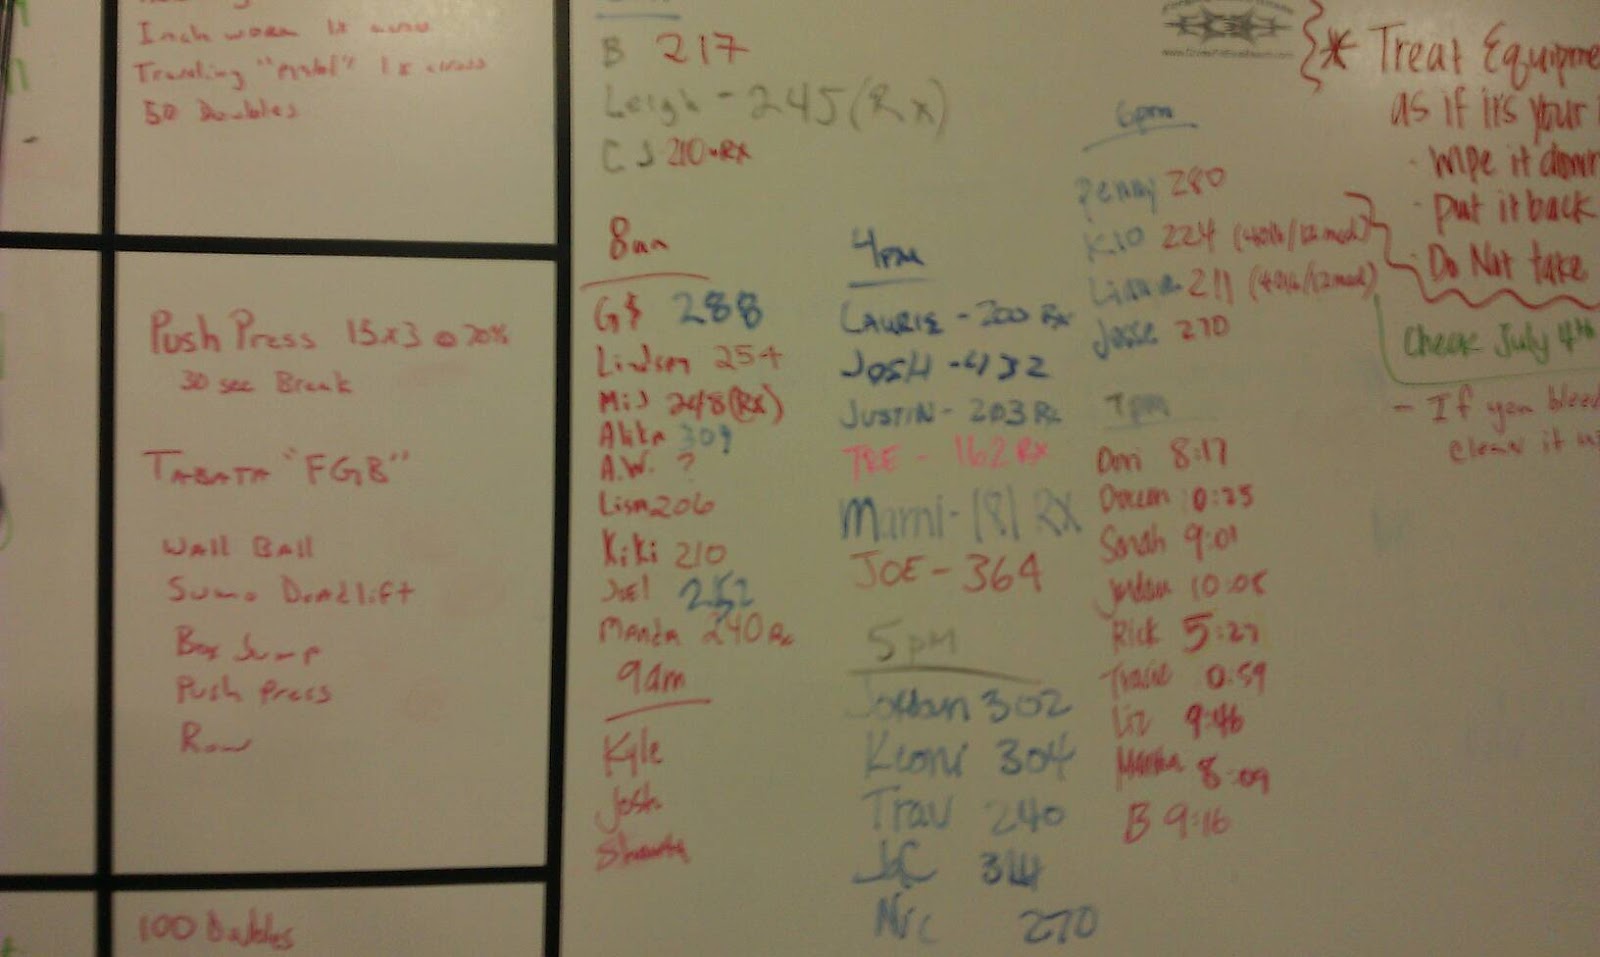 Inch worm 1x across
Traveling "Pistol" 1x across
50 Doubles
Push Press 15x3 @ 70%
30 sec Break
TABATA "FGB"
Wall Ball
Sumo Deadlift
Box Jump
Push Press
Row
100 Doubles
B 217
Leigh - 245 (Rx)
CJ 210-RX
8am
G$ 288
Lindsey 254
MiJ 248 (RX)
Alika 309
A.W. ?
Lisa 206
Kiki 210
Joel 252
Manda 240 Rx
9am
Kyle
Josh
4PM
LAURIE - 200 Rx
JOSH - 432
JUSTIN - 203 Rx
TEE - 162 RX
Marni - 181 RX
JOE - 364
5pm
Jordan 302
Keoni 304
Trav 240
314
Nic 270
6pm
Penny 280
KIO 224 (40lb/12med)
211 (40lb/12med)
Jesse 270
7pm
Dori 8:17
10:25
Sarah 9:01
Jordan 10:05
Rick 5:27
Tracie
Liz 9:46
8:09
B 9:16
* Treat Equipme
as if it's your
· Wipe it down
· Put it back
· Do Not take
Check July 4th
- If you bleed
clean it u